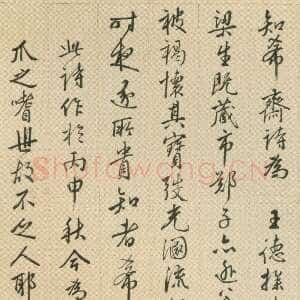 知希齋詩為王德操
梁生既藏市鄭子亦逃
被褐懷其寶發光溷流
時夜逐所貴知者希
此詩作於丙申秋今為
爪之嗜世故不乏人耶
Shufawang.CN